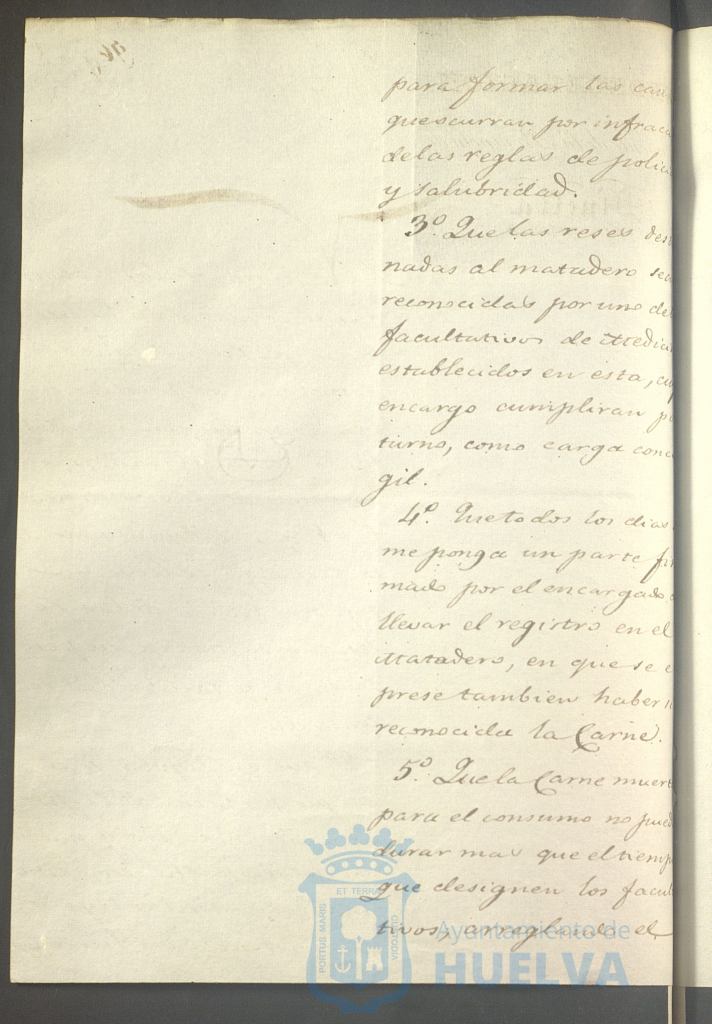 para formar las cau
que ocurran por infrac
de las reglas de polic
y salubridad.
3º. Que las reses des
nadas al matadero se
reconocidas por uno de
facultativos de Medici
establecidos en esta, cu
encargo cumpliran p
turno, como carga conc
gil.
4º. Que todos los dias
me ponga un parte fir
mado por el encargado
llevar el registro en el
Matadero, en que se e
prese tambien haber
reconocida la Carne.
5º. Que la Carne muert
para el consumo no pued
durar mas que el tiemp
que designen los facul
tivos, arreglando el
PORTUS MARIS
ET TERRÆ
CUSTODIA
Ayuntamiento de
HUELVA